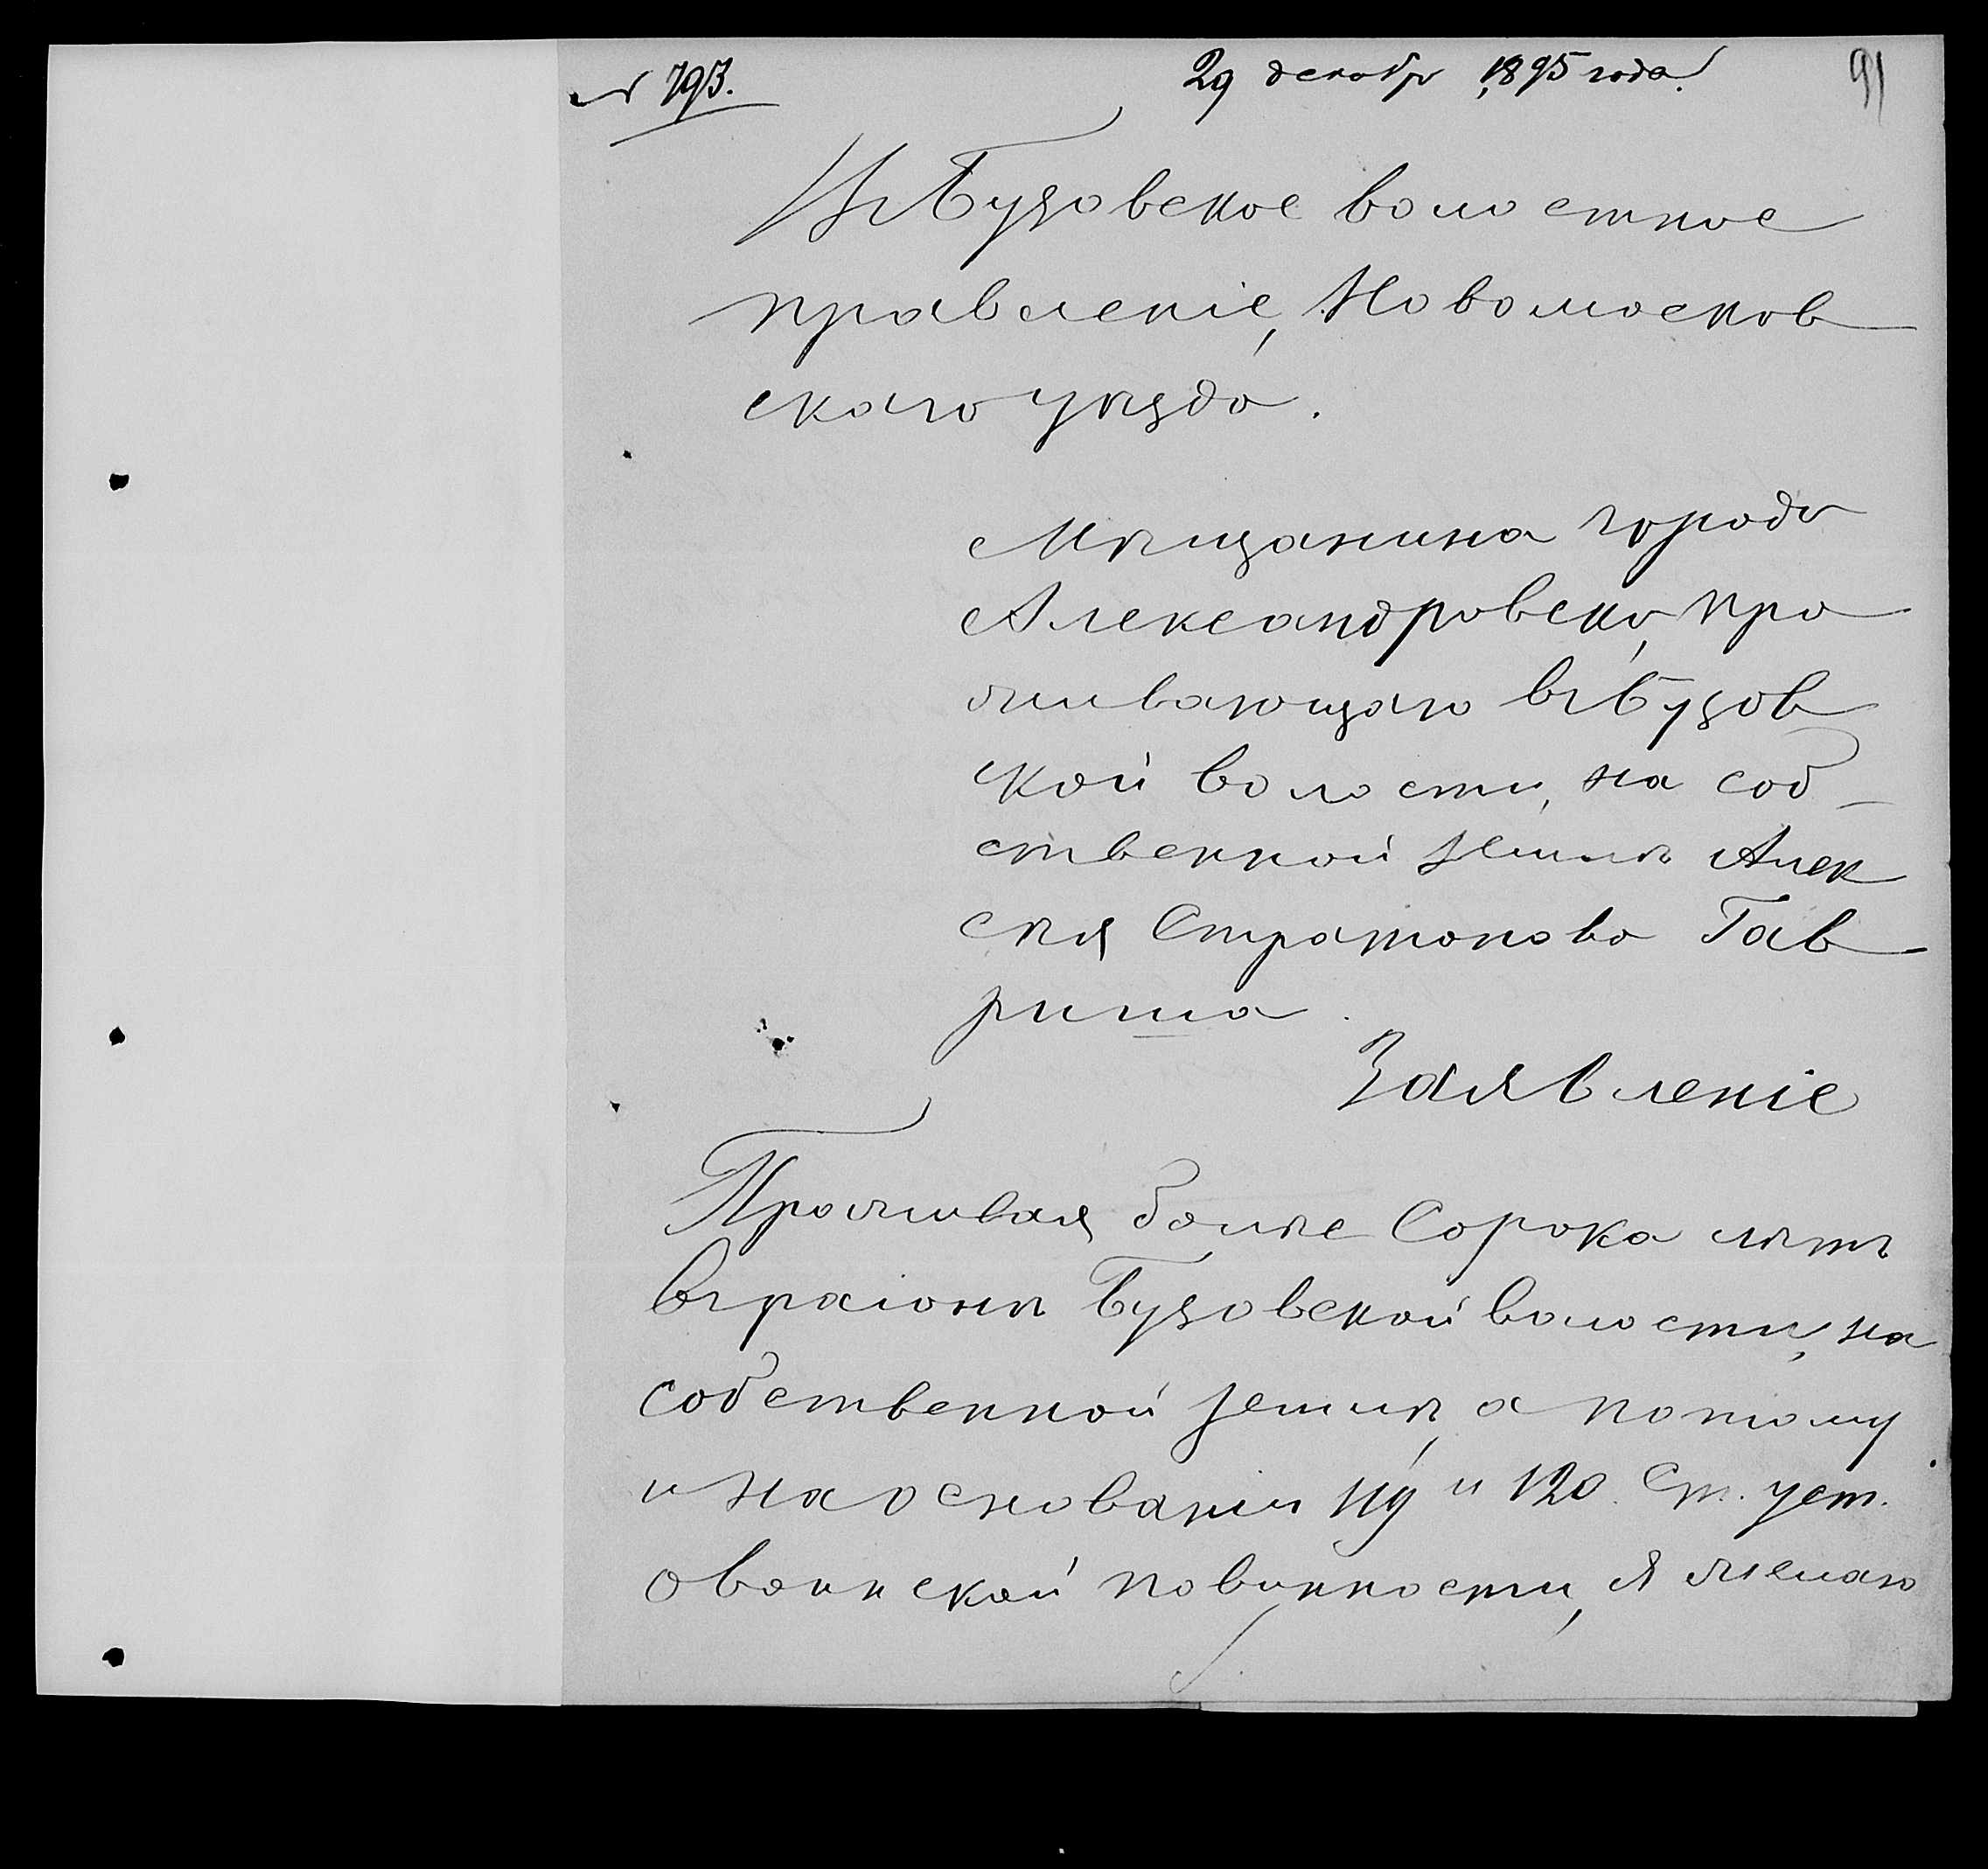 № 793. 29 декабр 1895 года. 91
Въ Бузовское волостное
правленіе, Новомосков
скаго уѣзда.
Мѣщанина города
Александровска, про
живающаго въ Бузов
кой волости, на соб-
ственной землѣ Алек
сѣя Стратонова Гав
риша.
Заявленіе
Проживая болѣе Сорока лѣтъ
въ раіонѣ Бузовской волости, на
собственной землѣ, а потому
и на основаніи 119 и 120. Ст. уст.
о воинской повинности, я желаю